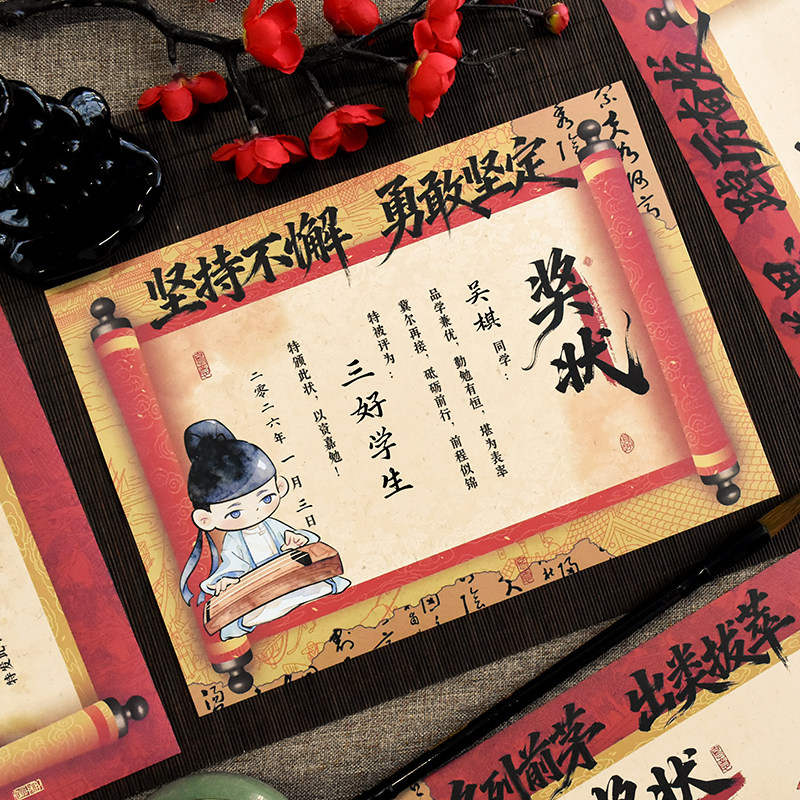 坚持不懈 勇敢坚定
奖状
吴棋 同学：
品学兼优，勤勉有恒，堪为表率
冀尔再接，砥砺前行，前程似锦
特被评为：
三好学生
特颁此状，以资嘉勉！
二零二六年一月三日
踔厉奋发
名列前茅 出类拔萃
奖状
特发此